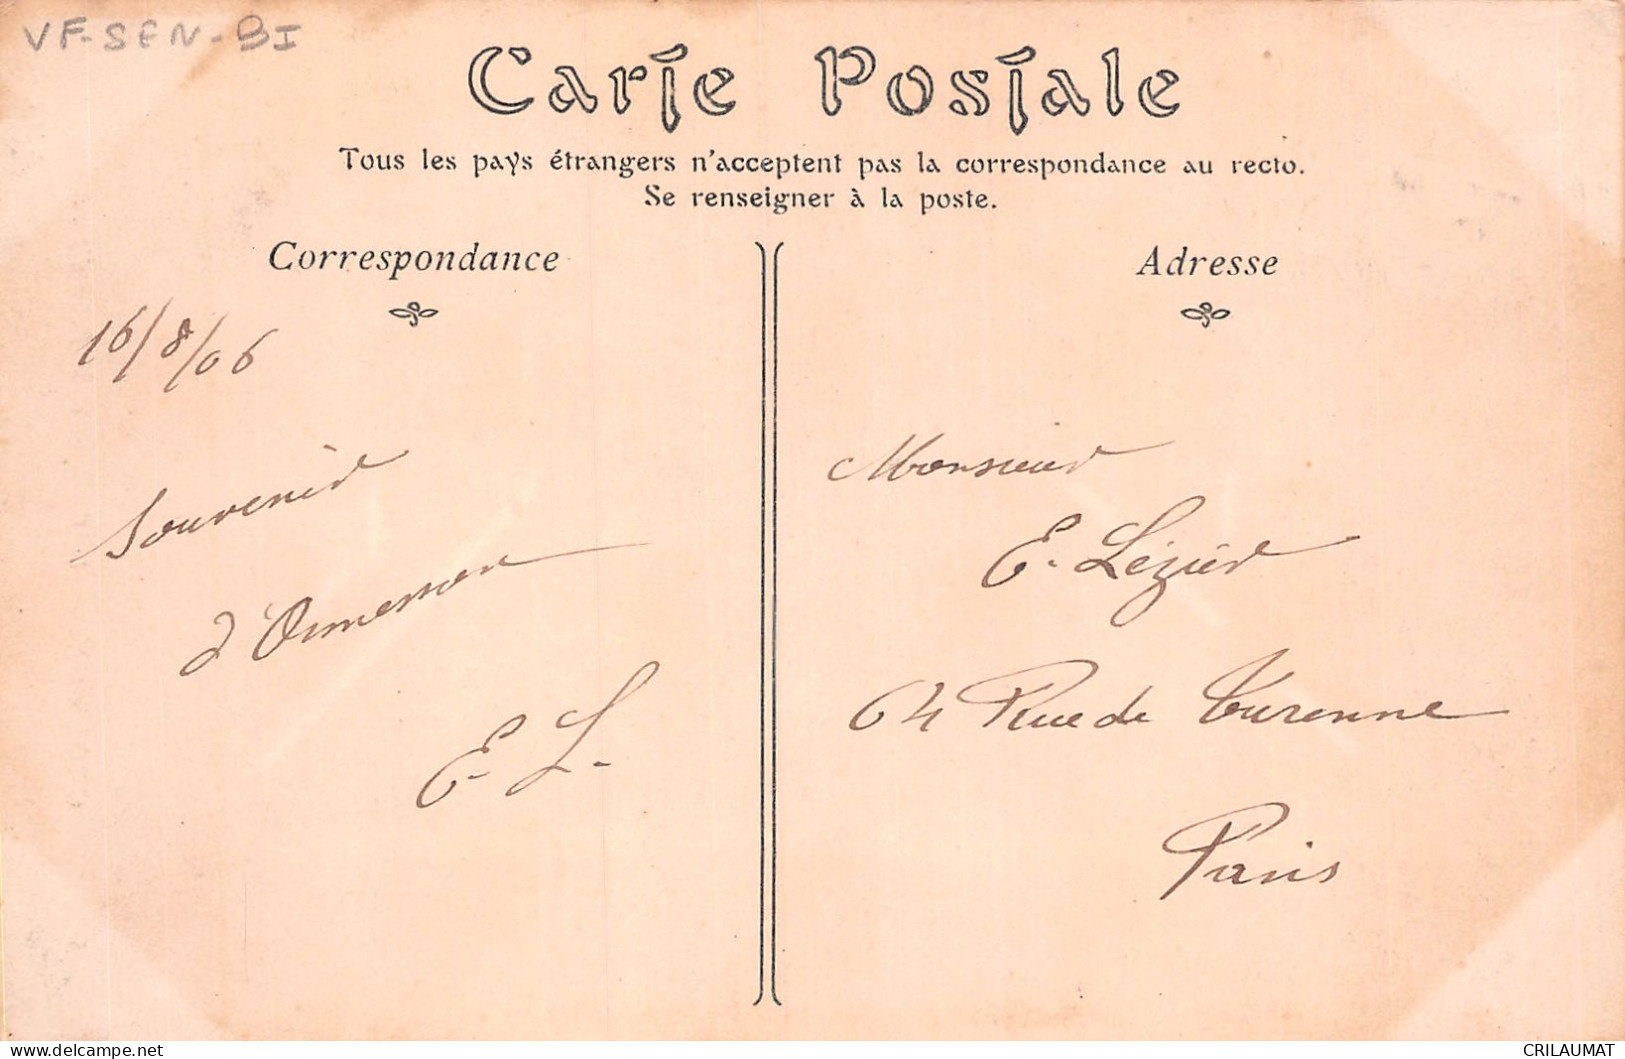 VF-SEN-BI
Carte Postale
Tous les pays étrangers n'acceptent pas la correspondance au recto.
Se renseigner à la poste.
Correspondance
16/8/06
Souvenir
d'Ormesson
E. L.
Adresse
Monsieur
E. Lézier
64 Rue de Turenne
Paris
delcampe.net
CRILAUMAT